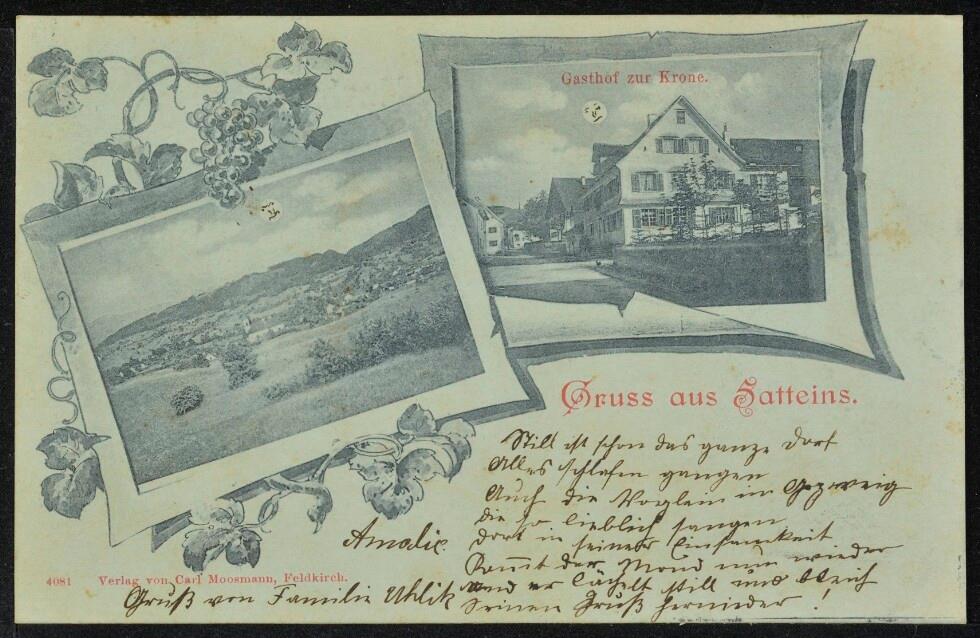 Gasthof zur Krone.
Gruss aus Satteins.
Still ist schon das ganze Dorf
Alles schlafen gangen
Auch die Vöglein im Gezweig
die so lieblich sangen
dort in seiner Einsamkeit
Kommt der Mond nun wieder
und er lächelt still und bleich
Seinen Gruß hernieder!
Amalie.
4081 Verlag von Carl Moosmann, Feldkirch.
Gruß von Familie Uhlik